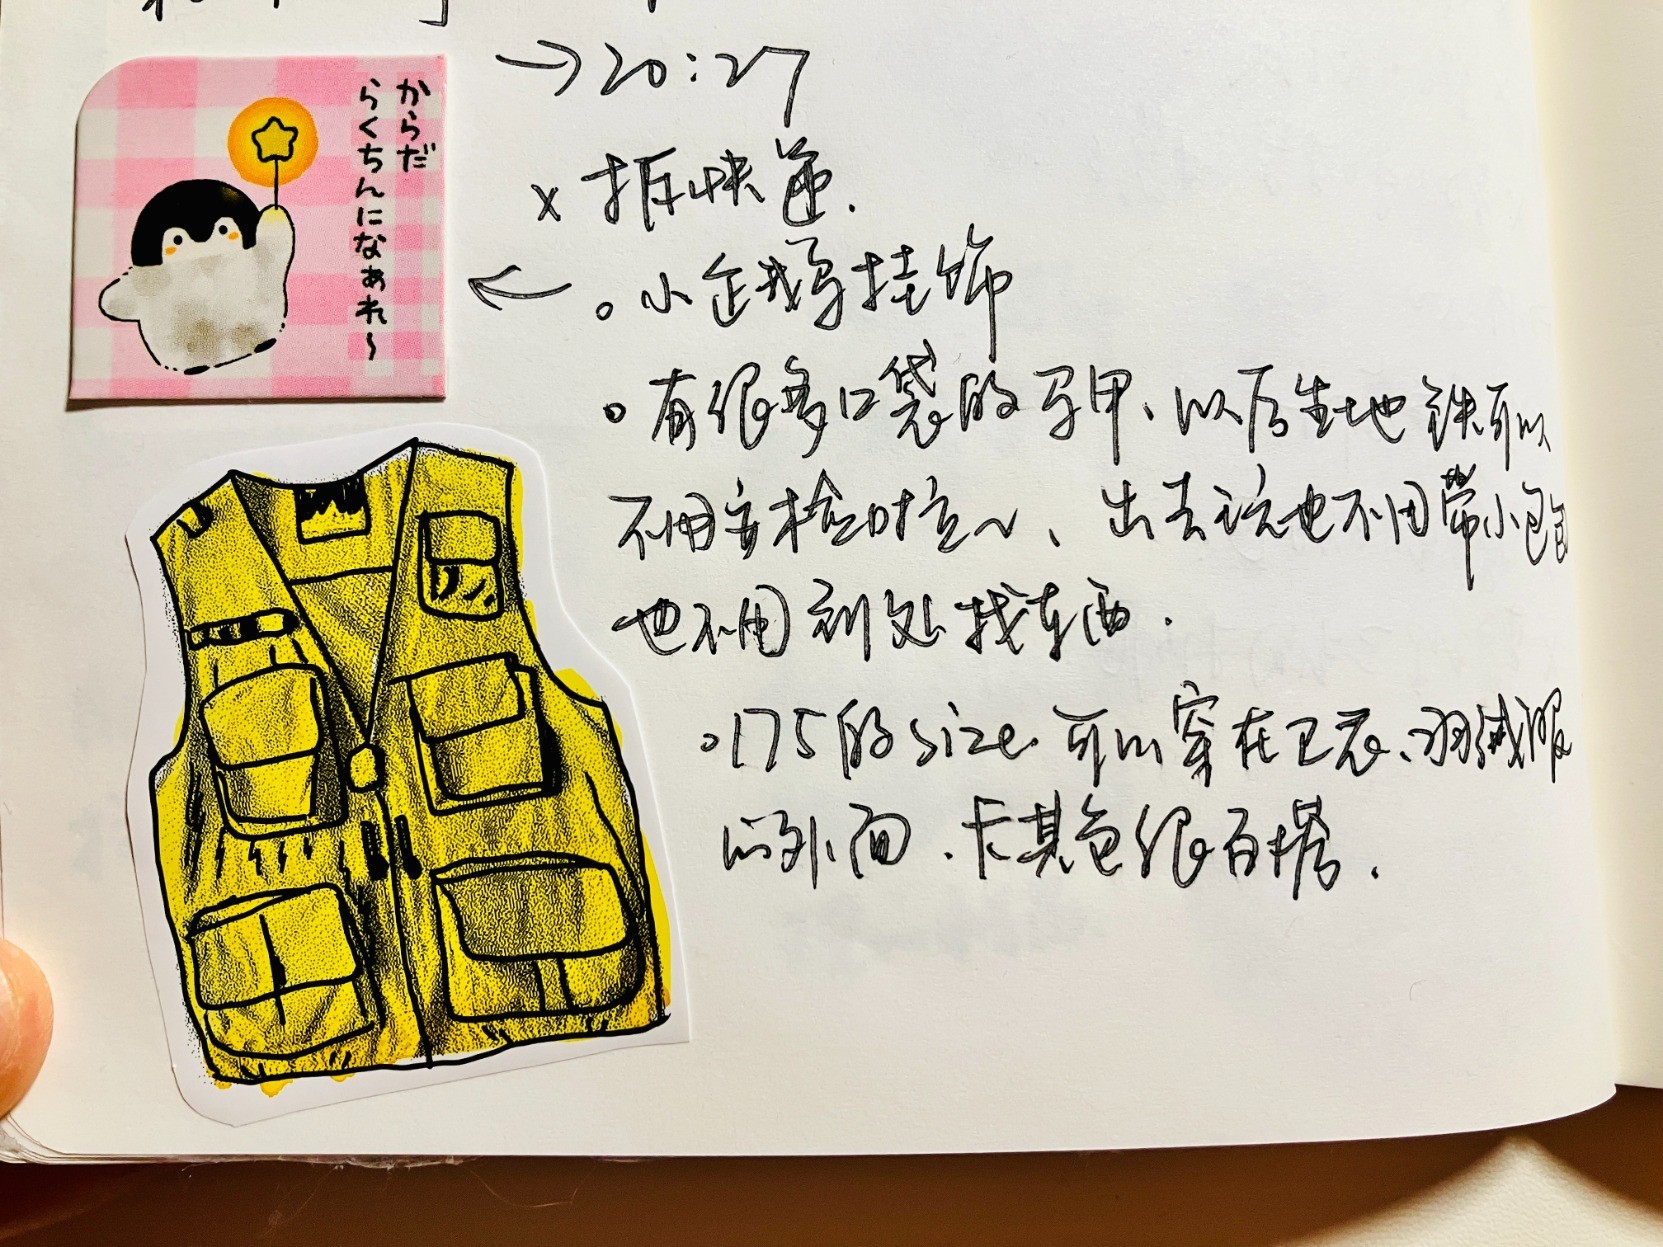 からだ
らくちんになぁれ~
→20:27
× 拆快递.
。小企鹅挂饰
。有很多口袋的马甲、以后坐地铁可以
不用安检时拉~、出去玩也不用带小包包
也不用到处找东西.
。175的size.可以穿在卫衣、羽绒服
的外面.卡其色很百搭.